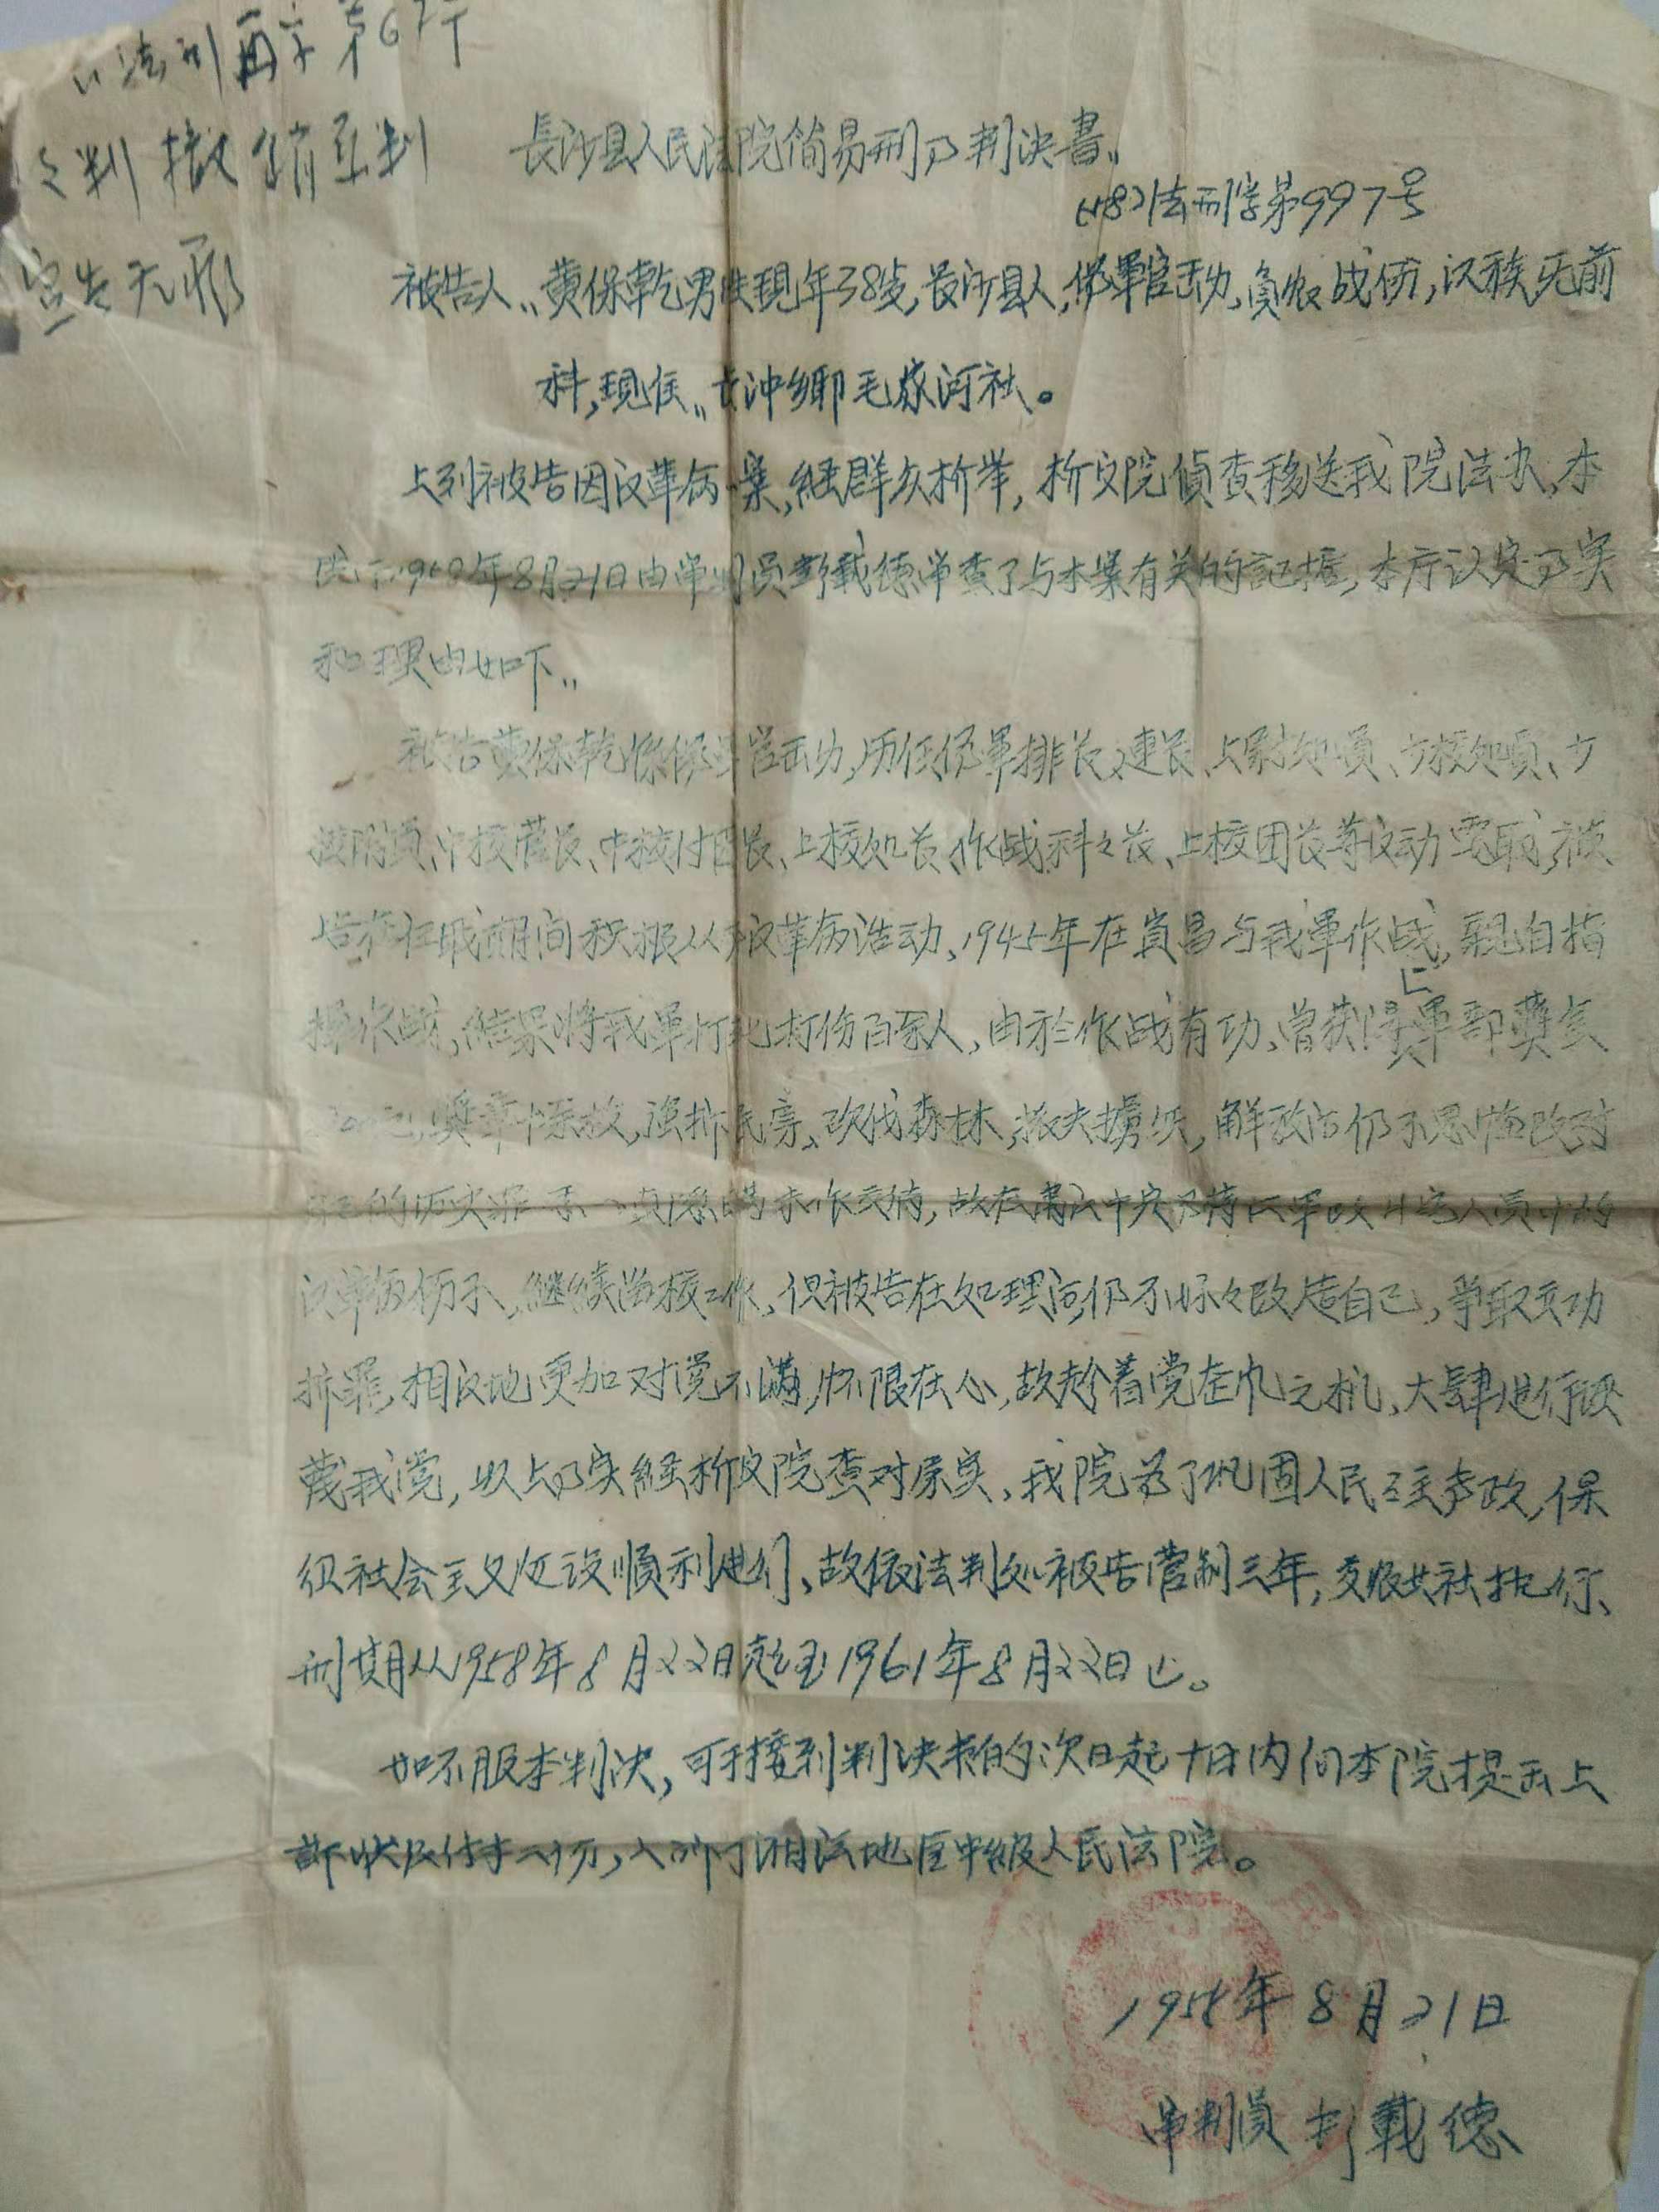 法刑再字第
之判撤销原判
宣告无罪
長沙县人民法院简易刑事判决書
(58)法刑字第997号
被告人:黄保乾男性現年38岁,长沙县人,伪軍官出身,贫农成份,汉族无前
科,現住: 冲鄉毛家河社。
上列被告因反革命一案,經群众检举,检察院偵查移送我院法办,本
院于1958年8月21日由审判员彭載德审查了与本案有关的証据,本庭认定事实
和理由如下:
被告黄保乾係伪軍官出身,历任伪軍排长、連长、上尉处員、少校处員、少
校附員、中校营长、中校付团长、上校处长、作战科々长、上校团长等反动要职,被
告在任职期间积极从事反革命活动,1945年在 昌与我軍作战,親自指
揮作战,結果将我軍打死打伤百余人,由於作战有功、曾获得軍部奬
奬章 ,强拆民房、砍伐森林, 解放后仍不思悔改对
自己的历史罪 未作交待,故在肃反中
反革命份子,継续学校工作,但被告在处理后仍不好好改造自己,争取立功
折罪,相反地更加对党不滿,怀限在心,故趁着党整风之机、大肆进行誣
蔑我党,以上事实經检察院查对属实、我院为了巩固人民民主专政,保
証社会主义建设順利进行、故依法判处被告管制三年,交农业社执行、
刑期从1958年8月22日起至1961年8月22日止。
如不服本判决,可于接到判决书的次日起十日内向本院提出上
訴状及付本二份,上訴于湘潭地区中級人民法院。
1958年8月21日
审判员 彭載德